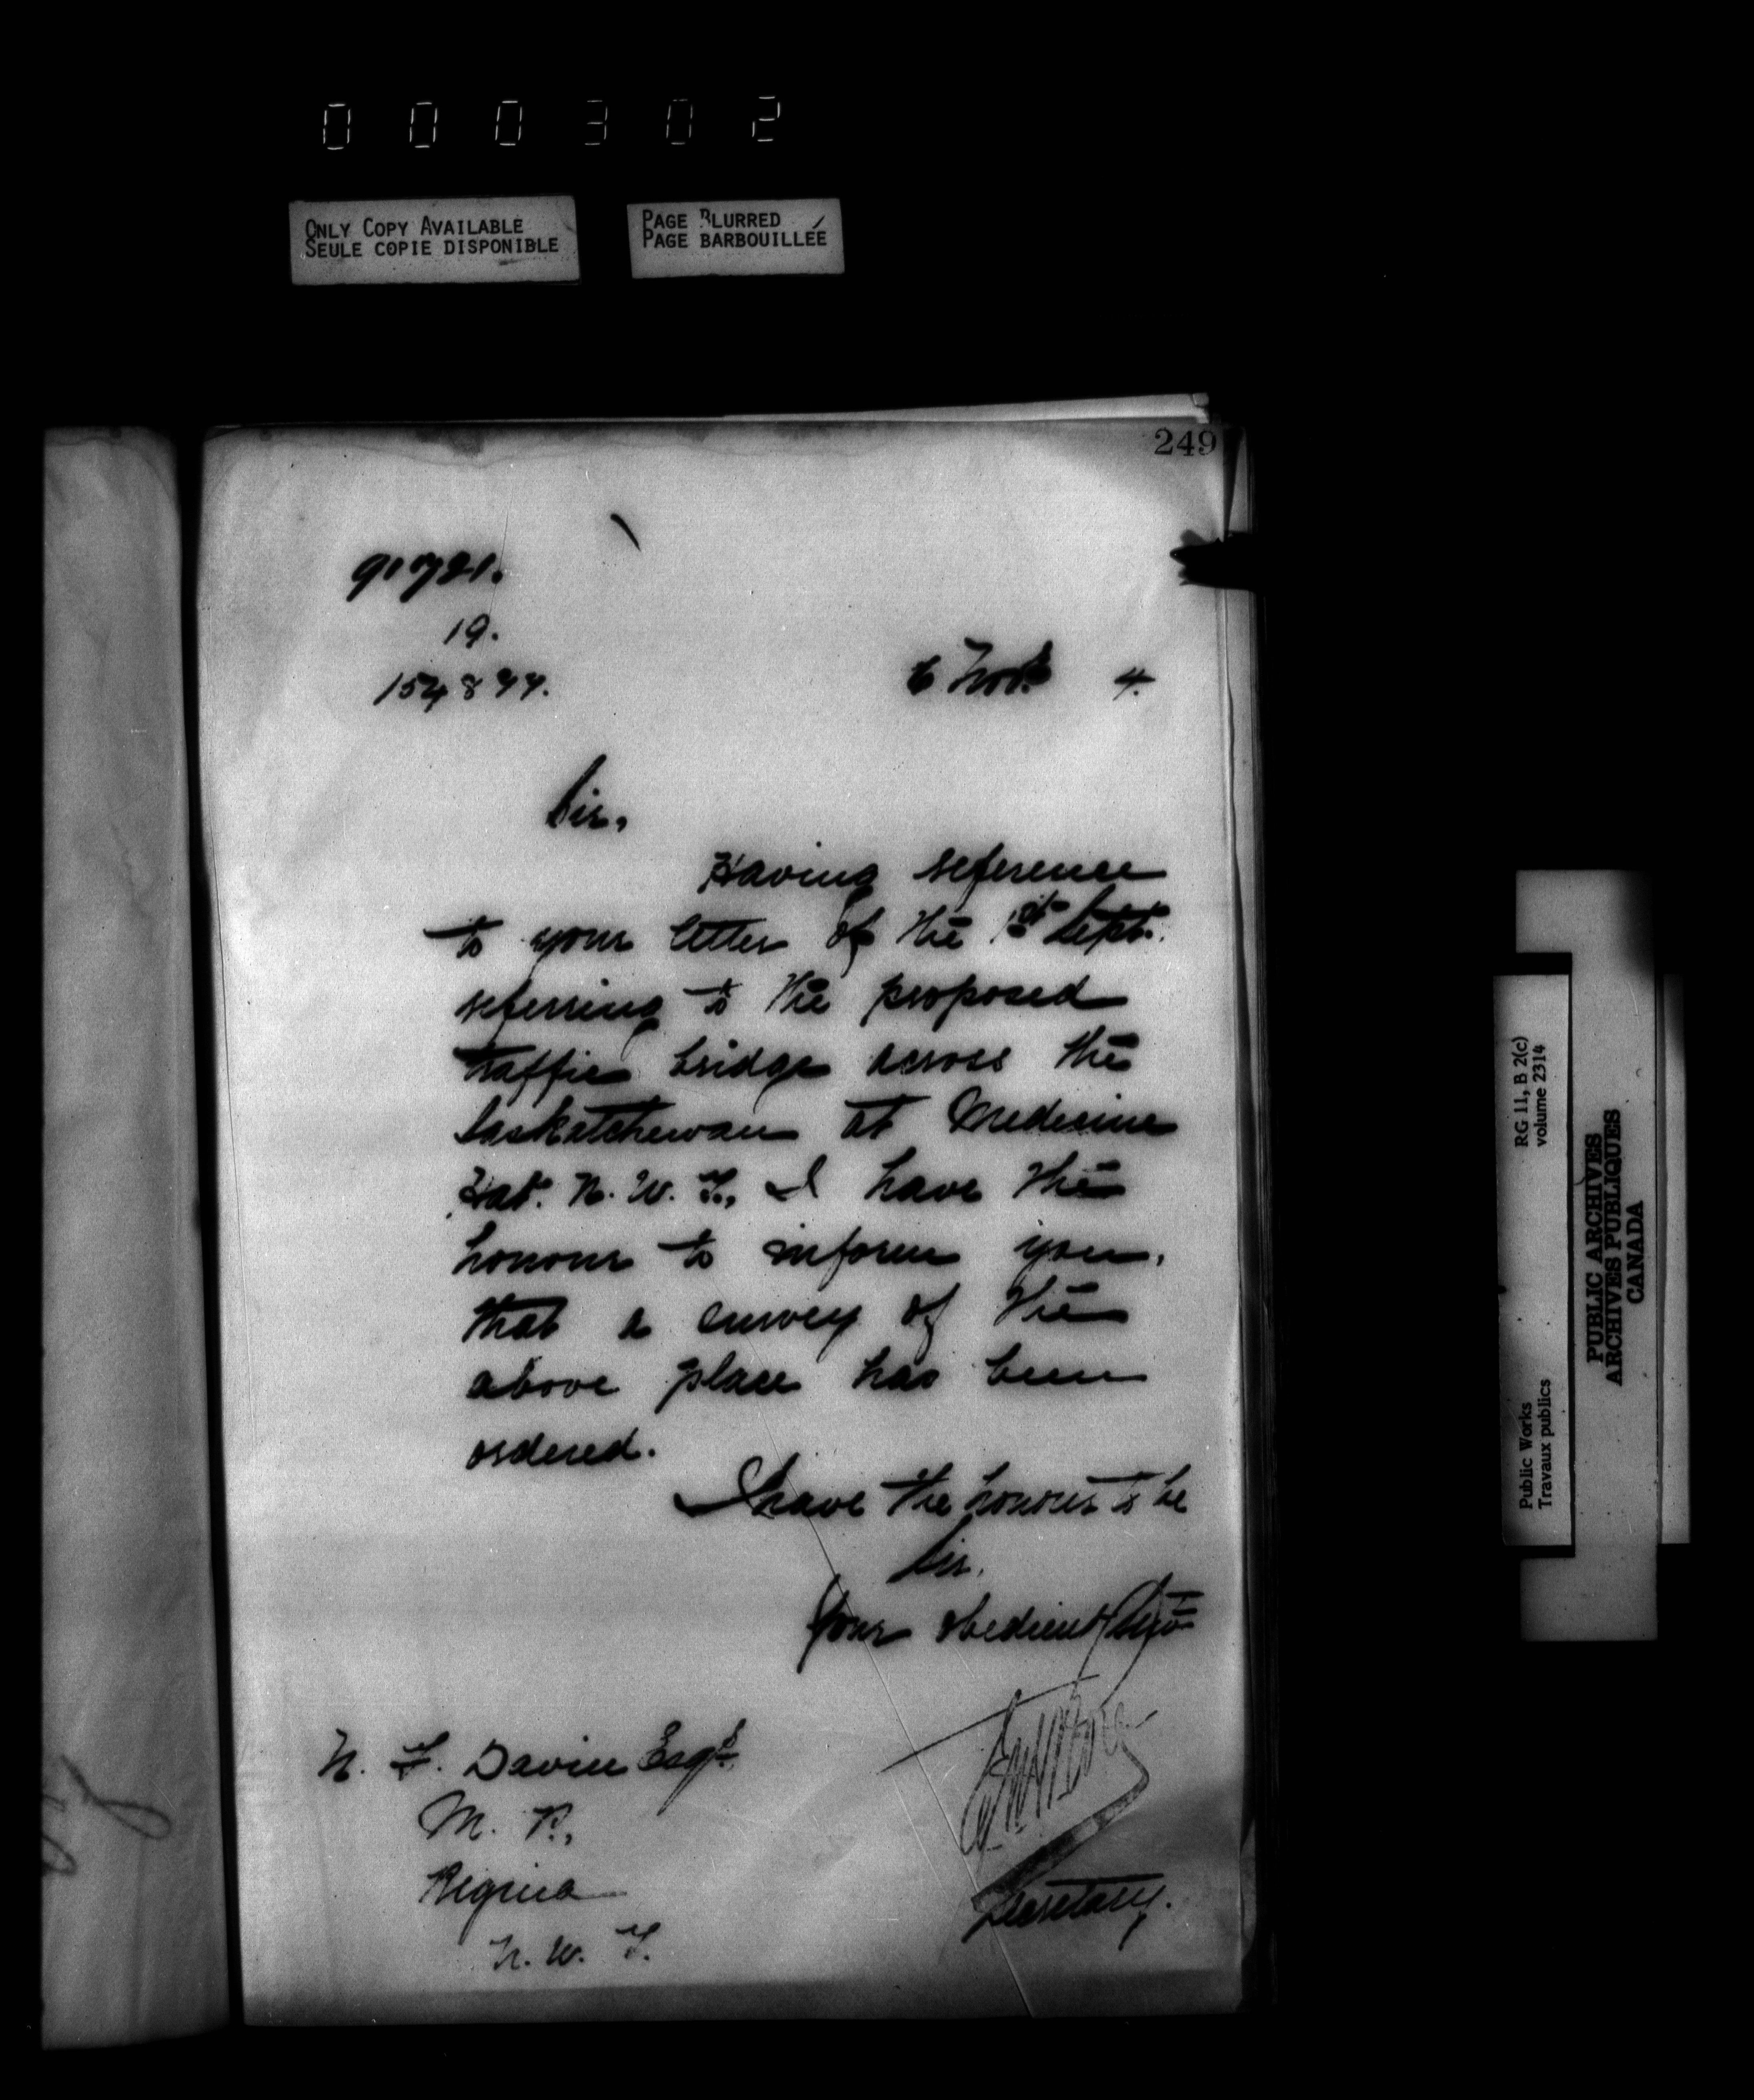 000302
ONLY COPY AVAILABLE
SEULE COPIE DISPONIBLE
PAGE BLURRED
PAGE BARBOUILLÉE
249
91721.
19.
6 Novr. 4.
Sir,
Having reference
to your letter of the 1st Sept.
referring to the proposed
traffic bridge across the
Saskatchewan at Medicine
Hat. N. W. T., I have the
honour to inform you,
that a survey of the
above place has been
ordered.
I have the honour to be
Sir,
Your obedient Servt
Secretary.
N. F. Davin Esqre.
M. P.,
Regina
N. W. T.
Public Works
Travaux publics
RG 11, B 2(c)
volume 2314
PUBLIC ARCHIVES
ARCHIVES PUBLIQUES
CANADA